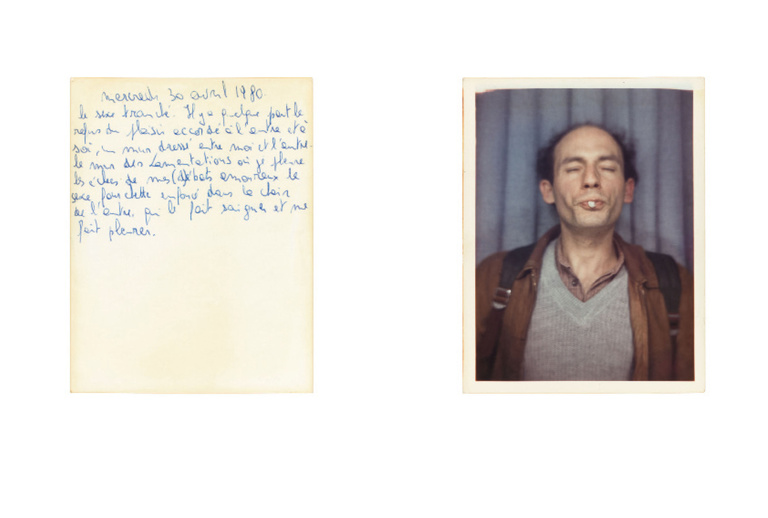 mercredi 30 avril 1980.
le sexe tranché. Il y a quelque part le
refus du plaisir accordé à l'autre et à
soi, un mur dressé entre moi et l'autre.
le mur des Lamentations où je pleure
les échecs de mes débats amoureux le
sexe fourchette enfoncé dans la chair
de l'autre, qui le fait saigner et me
fait pleurer.